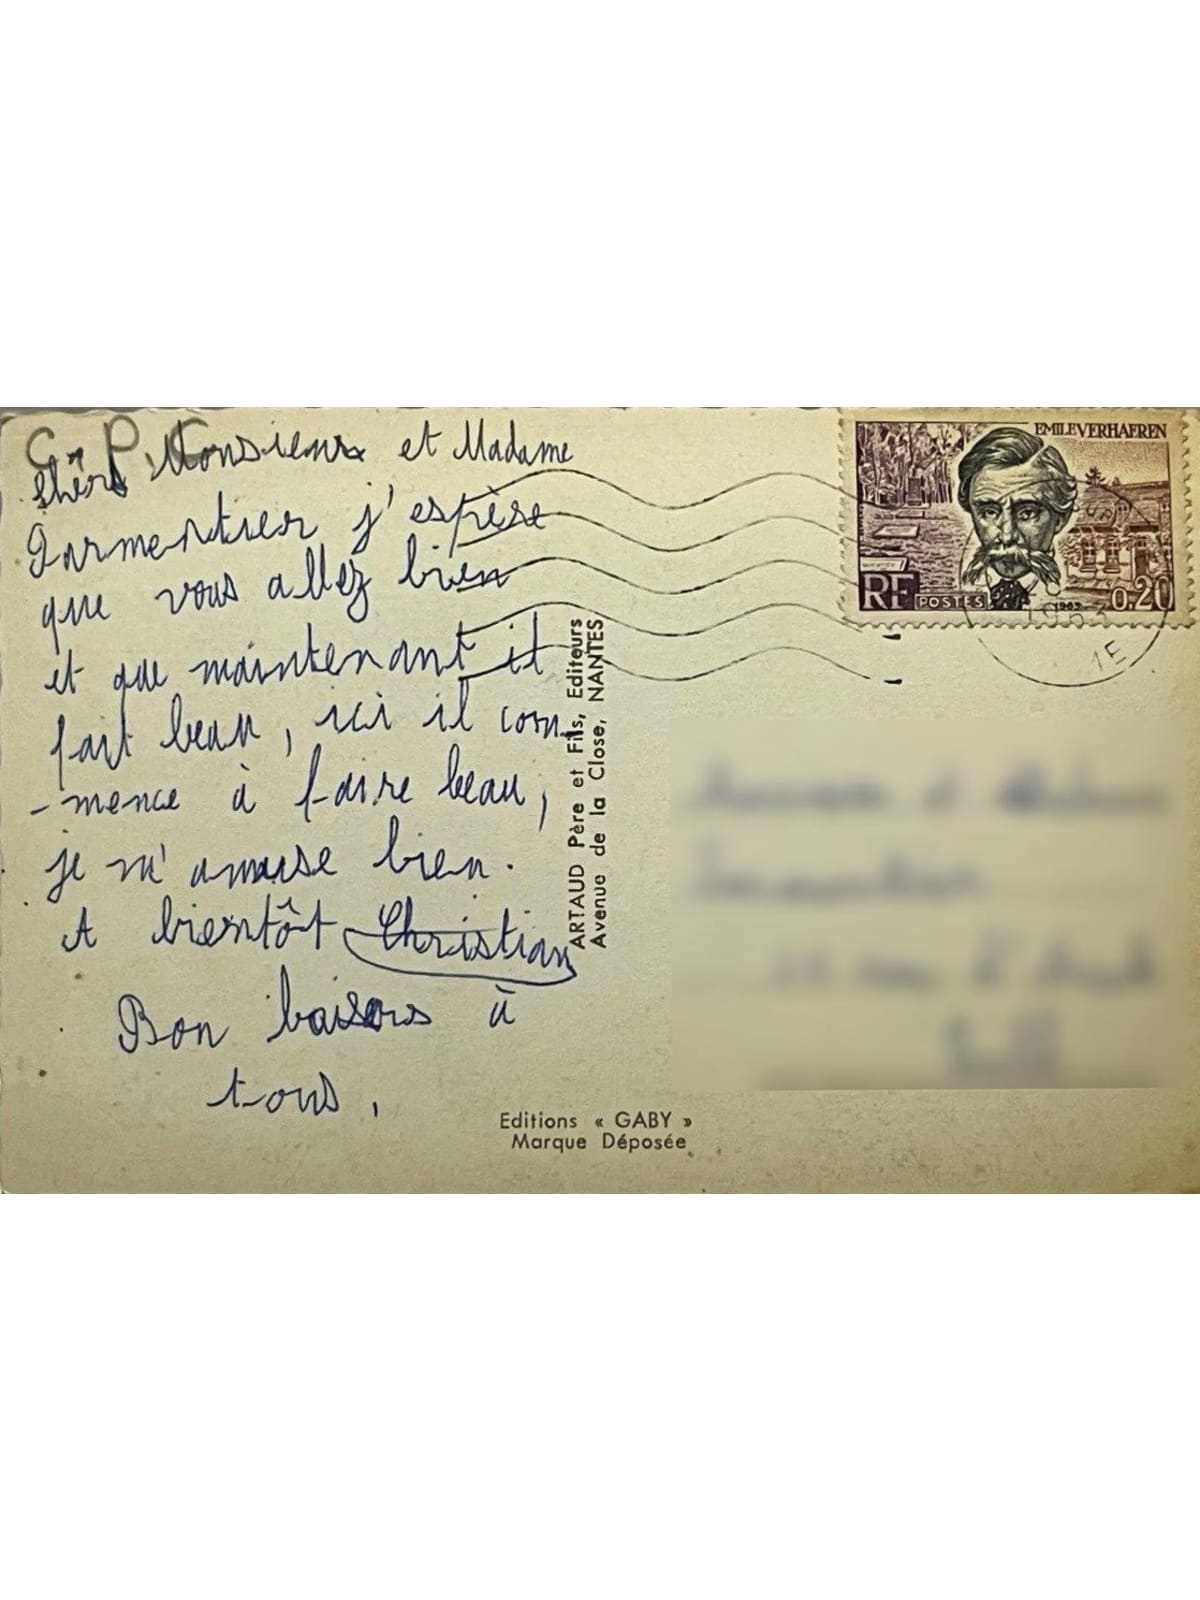 C.P.C
Chers Monsieur et Madame
Parmentier j'espère
que vous allez bien
et que maintenant il
fait beau, ici il com
-mence à faire beau,
je m'amuse bien.
A bientôt Christian
Bon baisers à
tous,
ARTAUD Père et Fils, Editeurs
Avenue de la Close, NANTES
Editions « GABY »
Marque Déposée
EMILE VERHAEREN
RF POSTES 1963 0.20
1963
IE